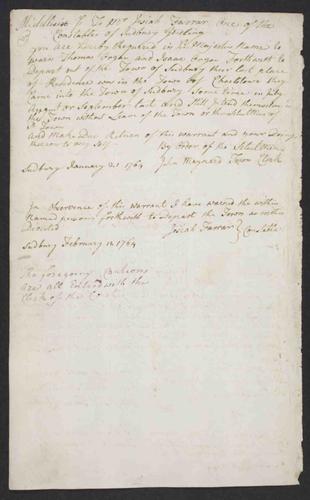 Middlesex Ss To Mr Josiah Farrar One of the
Constables of Sudbury Greeting
you are hereby Required in his Majesties Name to
warn Thomas and Isaac forthwith to
Depart out of the Town of Sudbury their last place
of Residence was in the Town of they
Came into the Town of Sudbury Some time in
August or September last And Still themselves in
the Town without Leave of the Town or the Select Men of
Sd Town
And make Due Return of this warrant and your Doings
thereon to my Self
By Order of the Select Men
Sudbury January 21 1764 John Maynard Town Clerk
In observence of this warrant I have warned the within
Named persons forthwith to Depart the Town as within
Directed
Josiah Farrar } Constable
Sudbury February 1764
The foregoing Cautions
are all Entered with the
Clerk of the Court